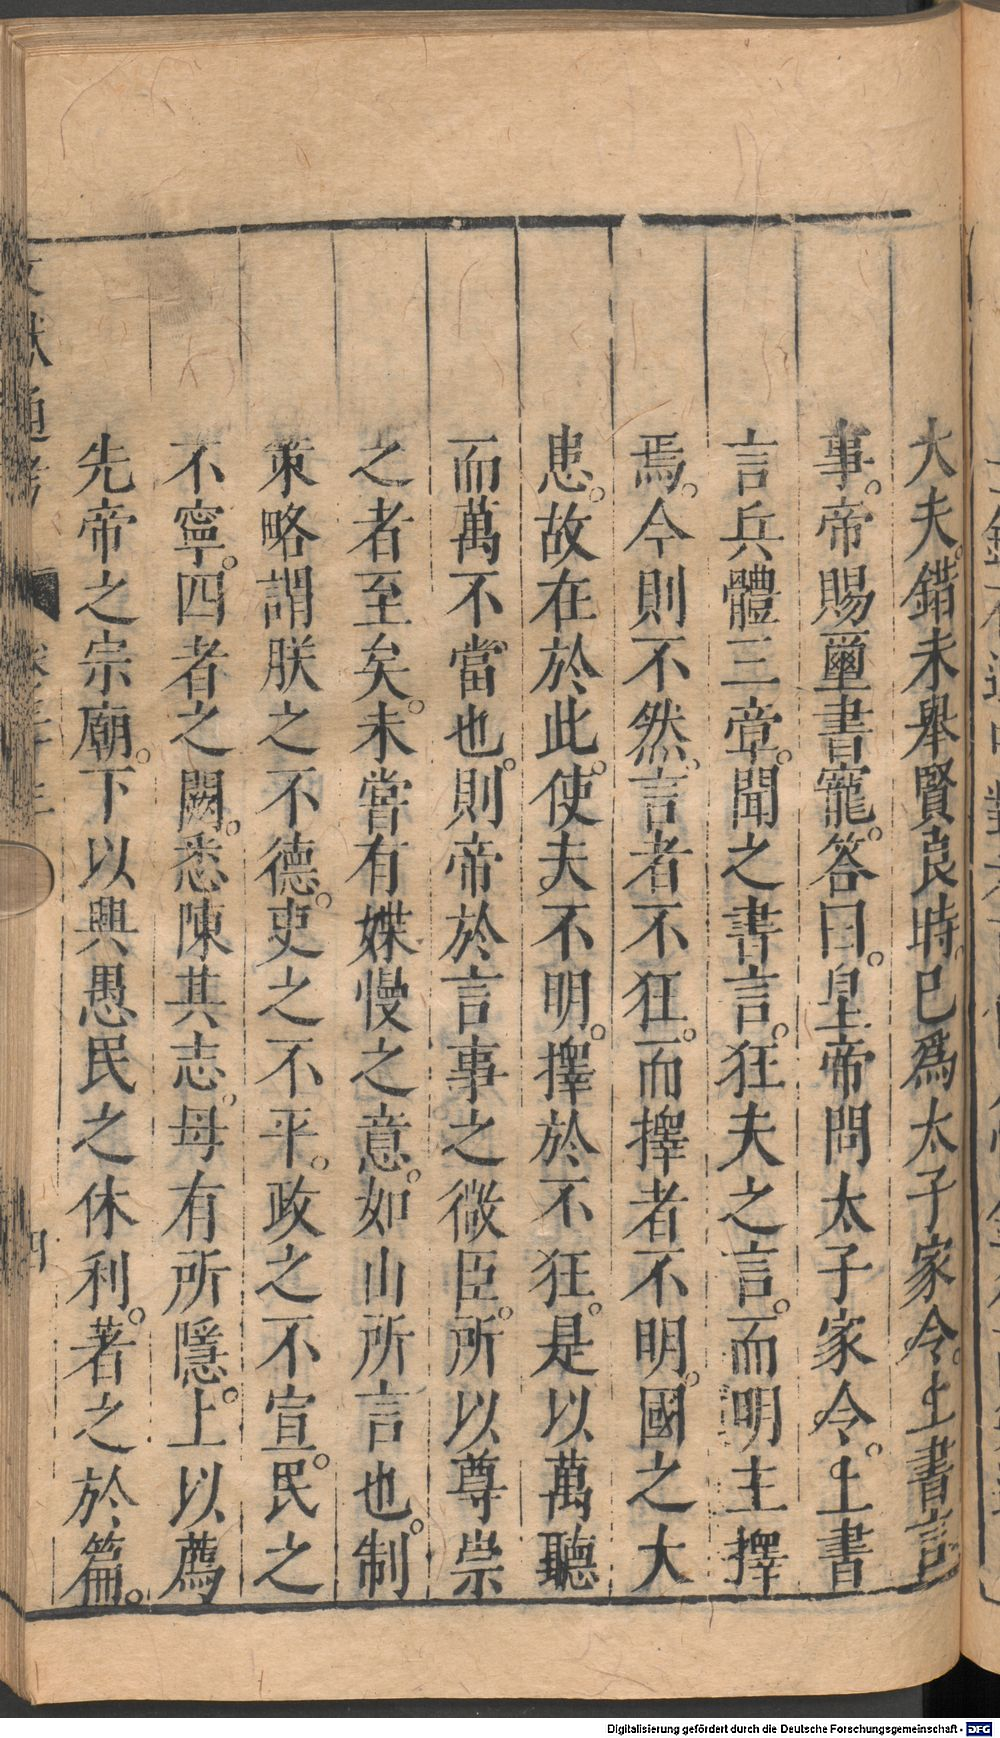 大夫。錯未舉賢良時。已爲太子家令。上書言
事。帝賜璽書寵答曰。皇帝問太子家令。上書
言兵體三章。聞之。書言。狂夫之言。而明主擇
焉。今則不然。言者不狂。而擇者不明。國之大
患。故在於此。使夫不明。擇於不狂。是以萬聽
而萬不當也。則帝於言事之微臣。所以尊崇
之者至矣。未嘗有媟慢之意。如山所言也。制
策略謂朕之不德。吏之不平。政之不宣。民之
不寧。四者之闕。悉陳其志。毋有所隱。上以薦
先帝之宗廟。下以興愚民之休利。著之於篇。
文獻通考
四
Digitalisierung gefördert durch die Deutsche Forschungsgemeinschaft - DFG